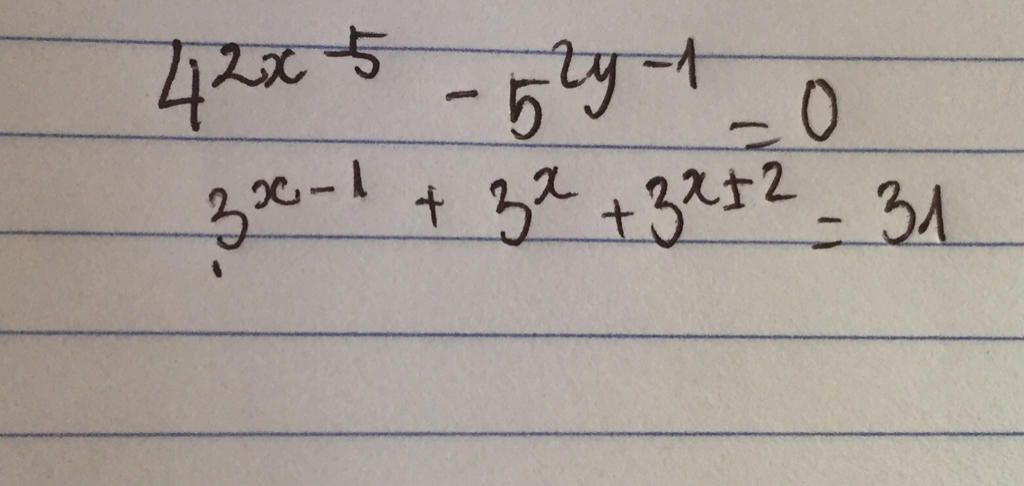 4^{2x-5} - 5^{2y-1} = 0
3^{x-1} + 3^{x} + 3^{x+2} = 31